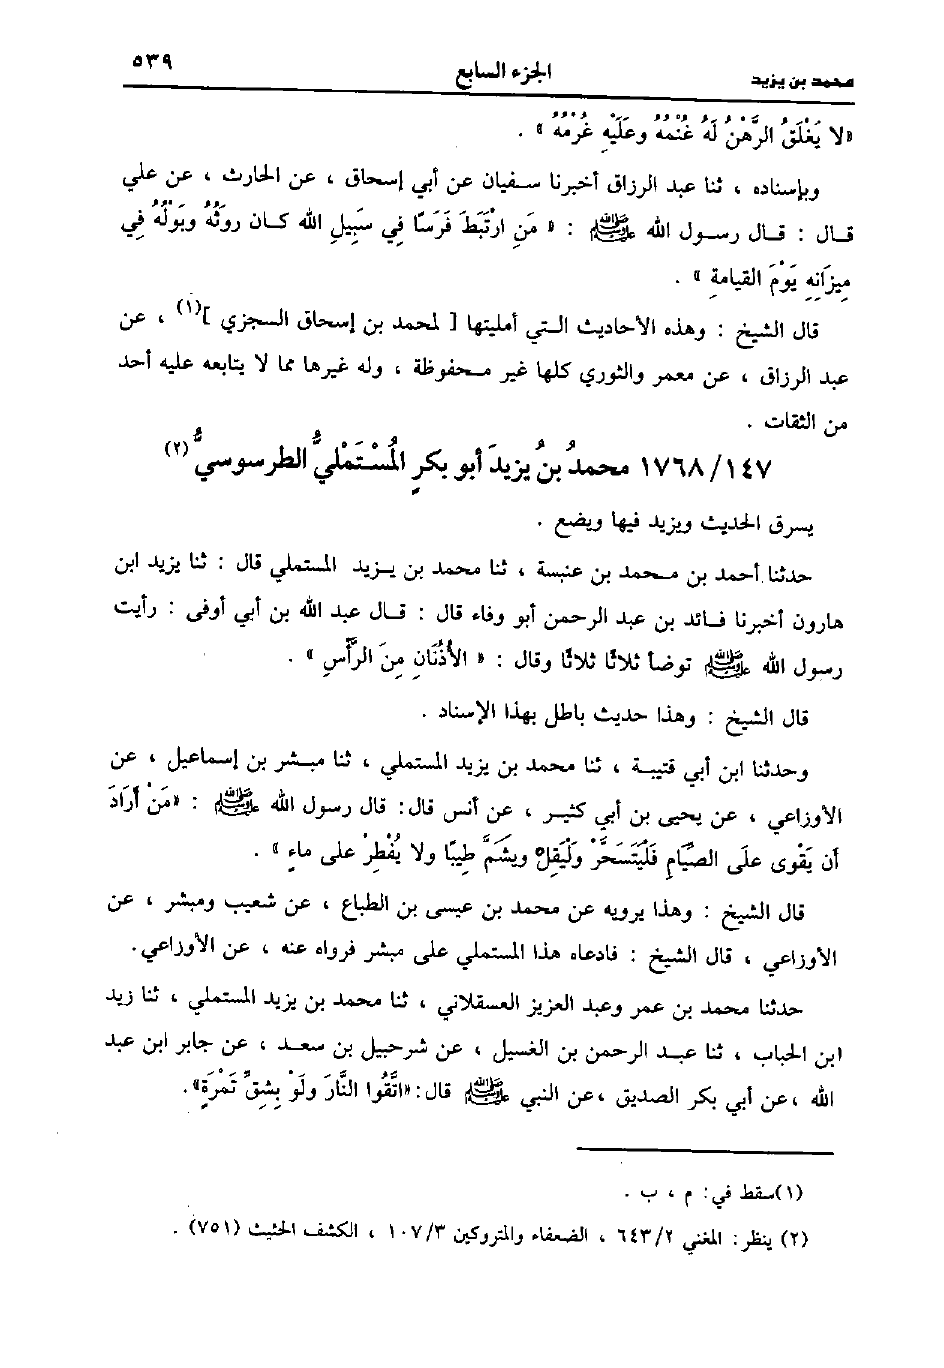 محمد بن يزيد الجزء السابع ٥٣٩
«لا يَغْلَقُ الرَّهْنُ لَهُ غُنْمُهُ وعَلَيْهِ غُرْمُهُ» .
وبإسناده ، ثنا عبد الرزاق أخبرنا سفيان عن أبي إسحاق ، عن الحارث ، عن علي
قال : قال رسول الله ﷺ : « مَنِ ارْتَبَطَ فَرَسًا فِي سَبِيلِ الله كان روثُهُ وبَوْلُهُ فِي
مِيزَانِهِ يَوْمَ القيامةِ » .
قال الشيخ : وهذه الأحاديث التي أمليتها [ لمحمد بن إسحاق السجزي ](١) ، عن
عبد الرزاق ، عن معمر والثوري كلها غير محفوظة ، وله غيرها مما لا يتابعه عليه أحد
من الثقات .
١٧٦٨/١٤٧ محمدُ بنُ يزيدَ أبو بكرٍ المُسْتَمْليُّ الطرسوسيُّ (٢)
يسرق الحديث ويزيد فيها ويضع .
حدثنا أحمد بن محمد بن عنبسة ، ثنا محمد بن يزيد المستملي قال : ثنا يزيد ابن
هارون أخبرنا فائد بن عبد الرحمن أبو وفاء قال : قال عبد الله بن أبي أوفى : رأيت
رسول الله ﷺ توضأ ثلاثًا ثلاثًا وقال : « الأُذُنَانِ مِنَ الرَّأسِ » .
قال الشيخ : وهذا حديث باطل بهذا الإسناد .
وحدثنا ابن أبي قتيبة ، ثنا محمد بن يزيد المستملي ، ثنا مبشر بن إسماعيل ، عن
الأوزاعي ، عن يحيى بن أبي كثير ، عن أنس قال: قال رسول الله ﷺ : «مَنْ أَرَادَ
أن يَقْوى علَى الصِّيَامِ فَلْيَتَسَحَّرْ وَلْيَقِلْ ويشَمَّ طِيبًا ولا يُفْطِرْ على ماءٍ » .
قال الشيخ : وهذا يرويه عن محمد بن عيسى بن الطباع ، عن شعيب ومبشر ، عن
الأوزاعي ، قال الشيخ : فادعاه هذا المستملي على مبشر فرواه عنه ، عن الأوزاعي.
حدثنا محمد بن عمر وعبد العزيز العسقلاني ، ثنا محمد بن يزيد المستملي ، ثنا زيد
ابن الحباب ، ثنا عبد الرحمن بن الغسيل ، عن شرحبيل بن سعد ، عن جابر ابن عبد
الله ، عن أبي بكر الصديق ، عن النبي ﷺ قال: «اتَّقُوا النَّارَ ولَوْ بِشِقِّ تَمْرَةٍ».
(١) سقط في: م ، ب .
(٢) ينظر: المغني ٦٤٣/٢ ، الضعفاء والمتروكين ١٠٧/٣ ، الكشف الحثيث (٧٥١) .